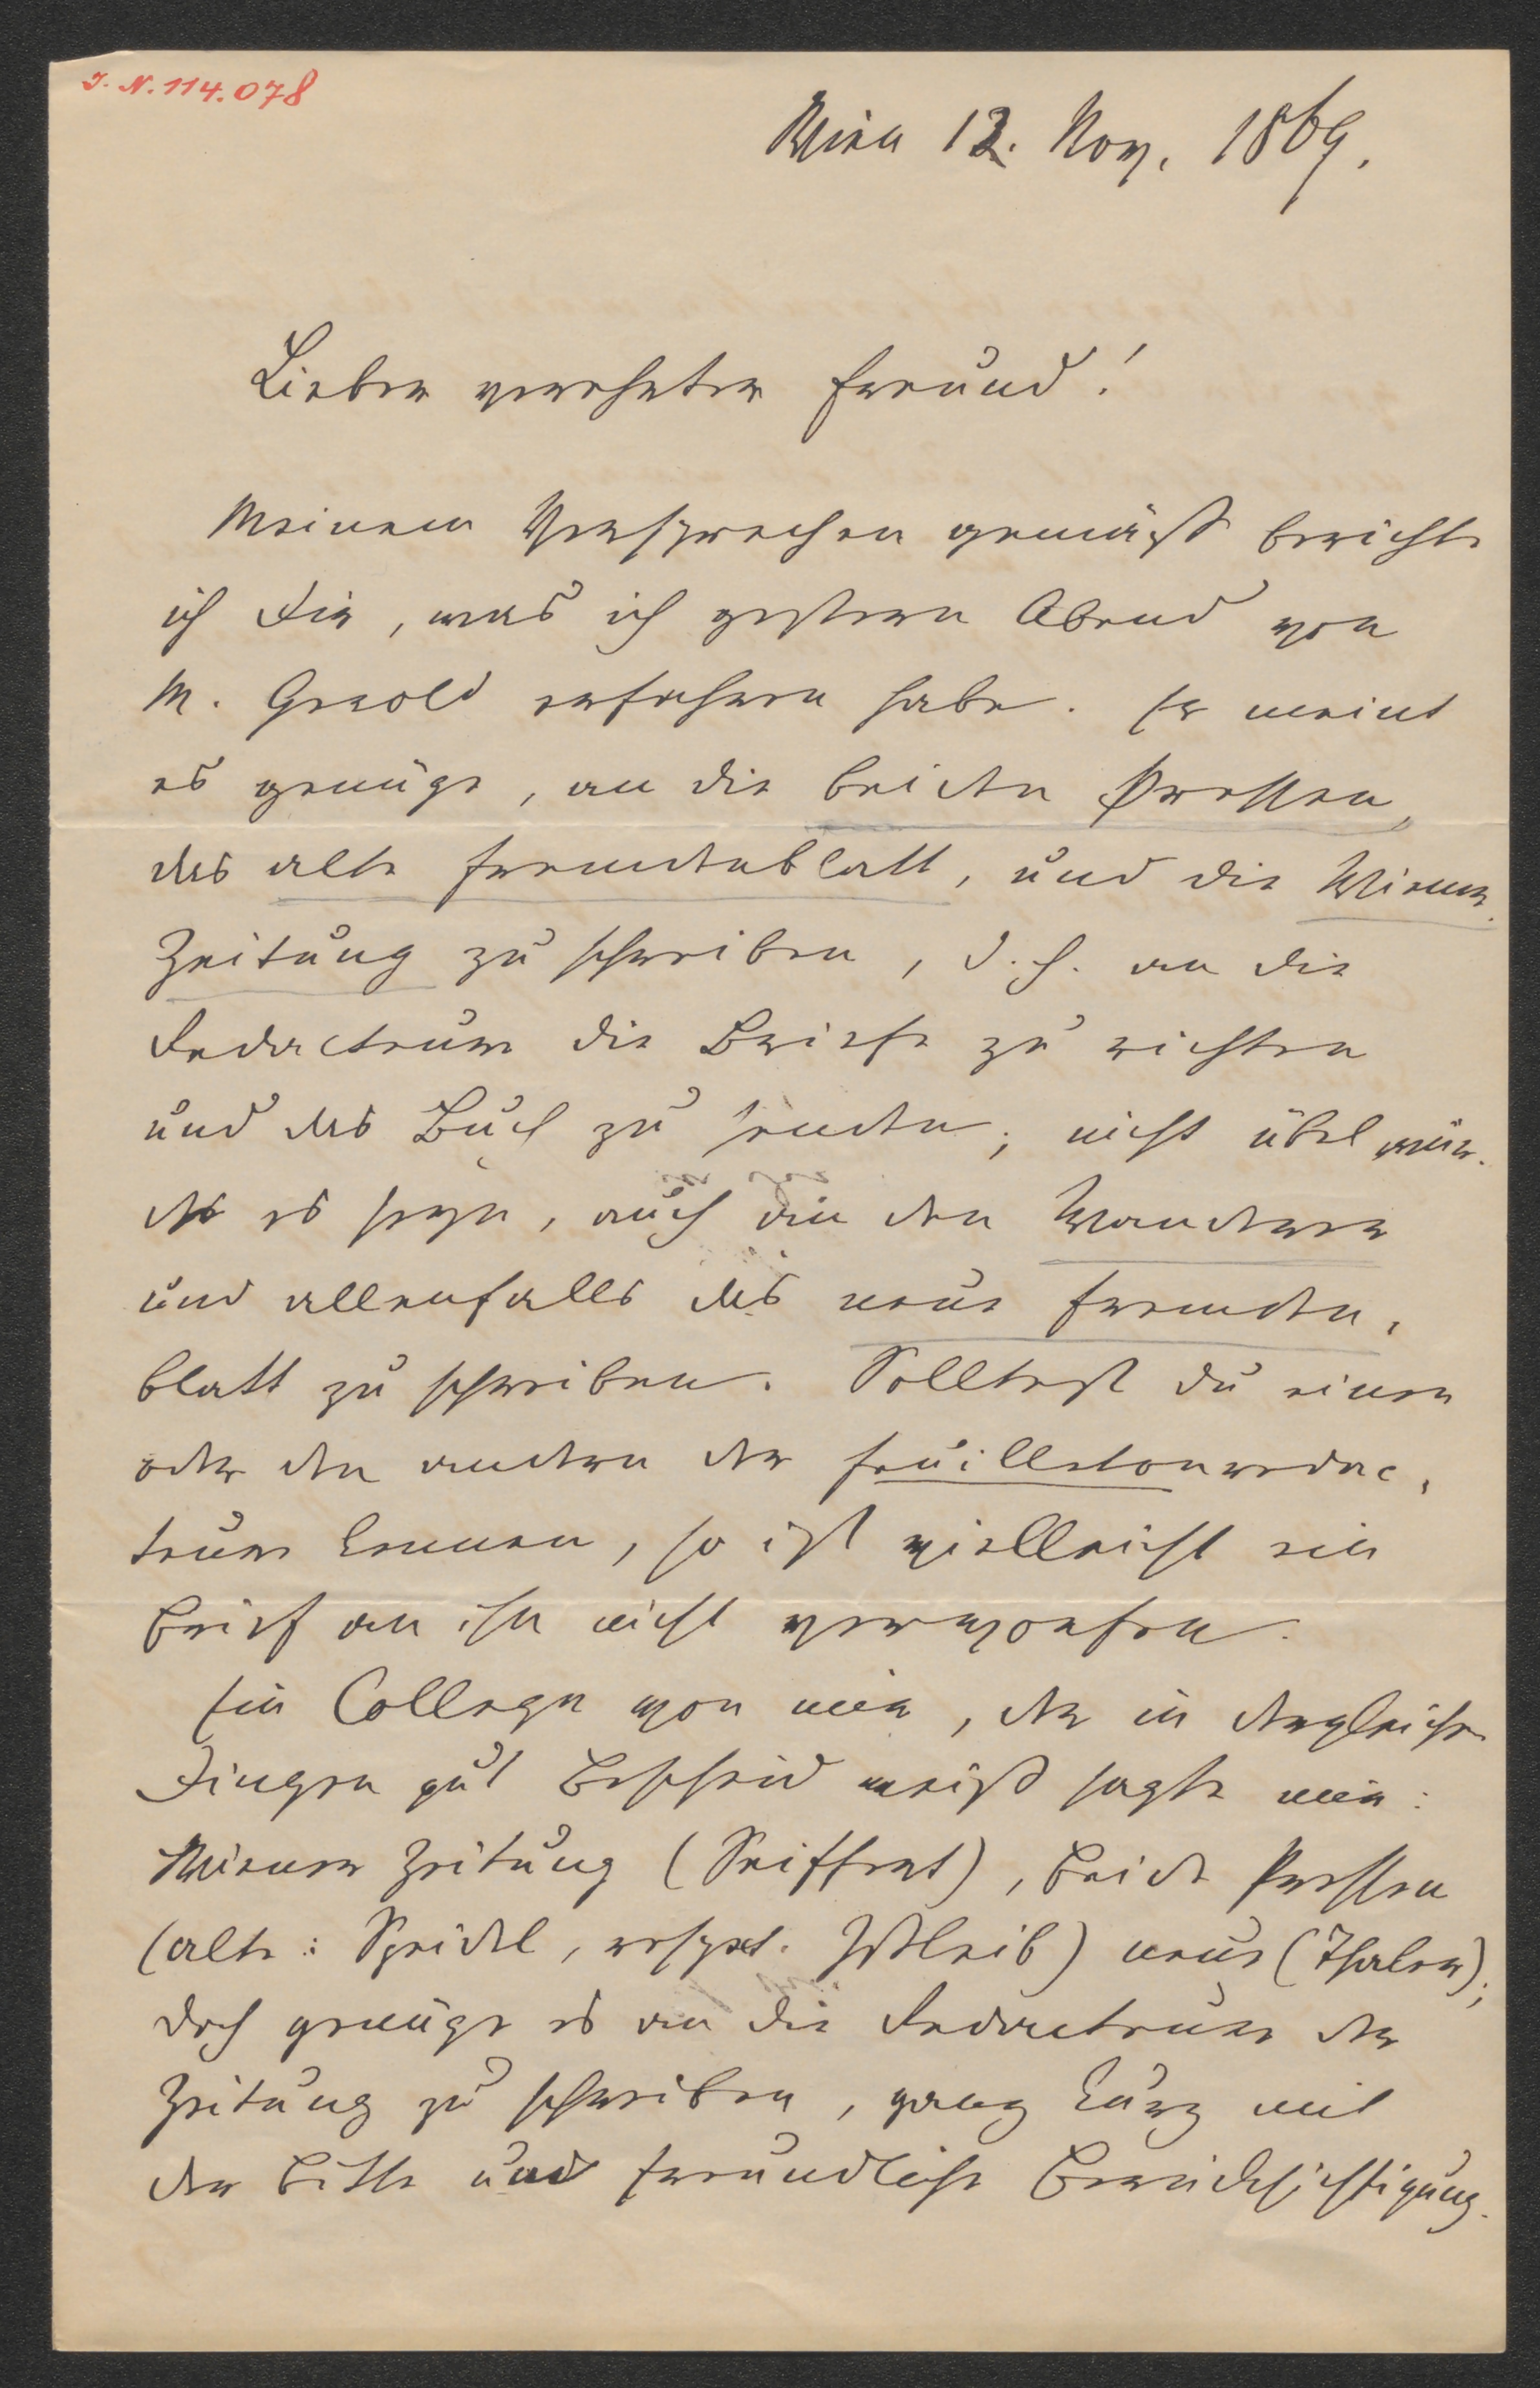 I. N. 114.078
Wien 12. Nov. 1869.
Lieber verehrter Freund!
Meinem Versprechen gemäß berichte
ich Dir, was ich gestern Abend von
M. Gerold erfahren habe. Er meint
es genüge, an die beiden Pressen,
das alte Fremdenblatt, und die Wiener
Zeitung zu schreiben, d. h. an die
Redacteure die Briefe zu richten
und das Buch zu senden; nicht übel wür-
de es seyn, auch an den Wanderer
und allenfalls das neue Fremden-
blatt zu schreiben. Solltest du einen
oder den andern der Feuilletonredac-
teure kennen, so ist vielleicht ein
Brief an ihn nicht verworfen.
Ein College von mir, der in dergleichen
Dingen gut Bescheid weiß sagte mir:
Wiener Zeitung (Seiffert), beide Pressen
(alte: Speidel, respet. ) neue (Thaler);
doch genüge es an die Redacteure der
Zeitung zu schreiben, ganz kurz mit
der Bitte und freundliche Berücksichtigung.